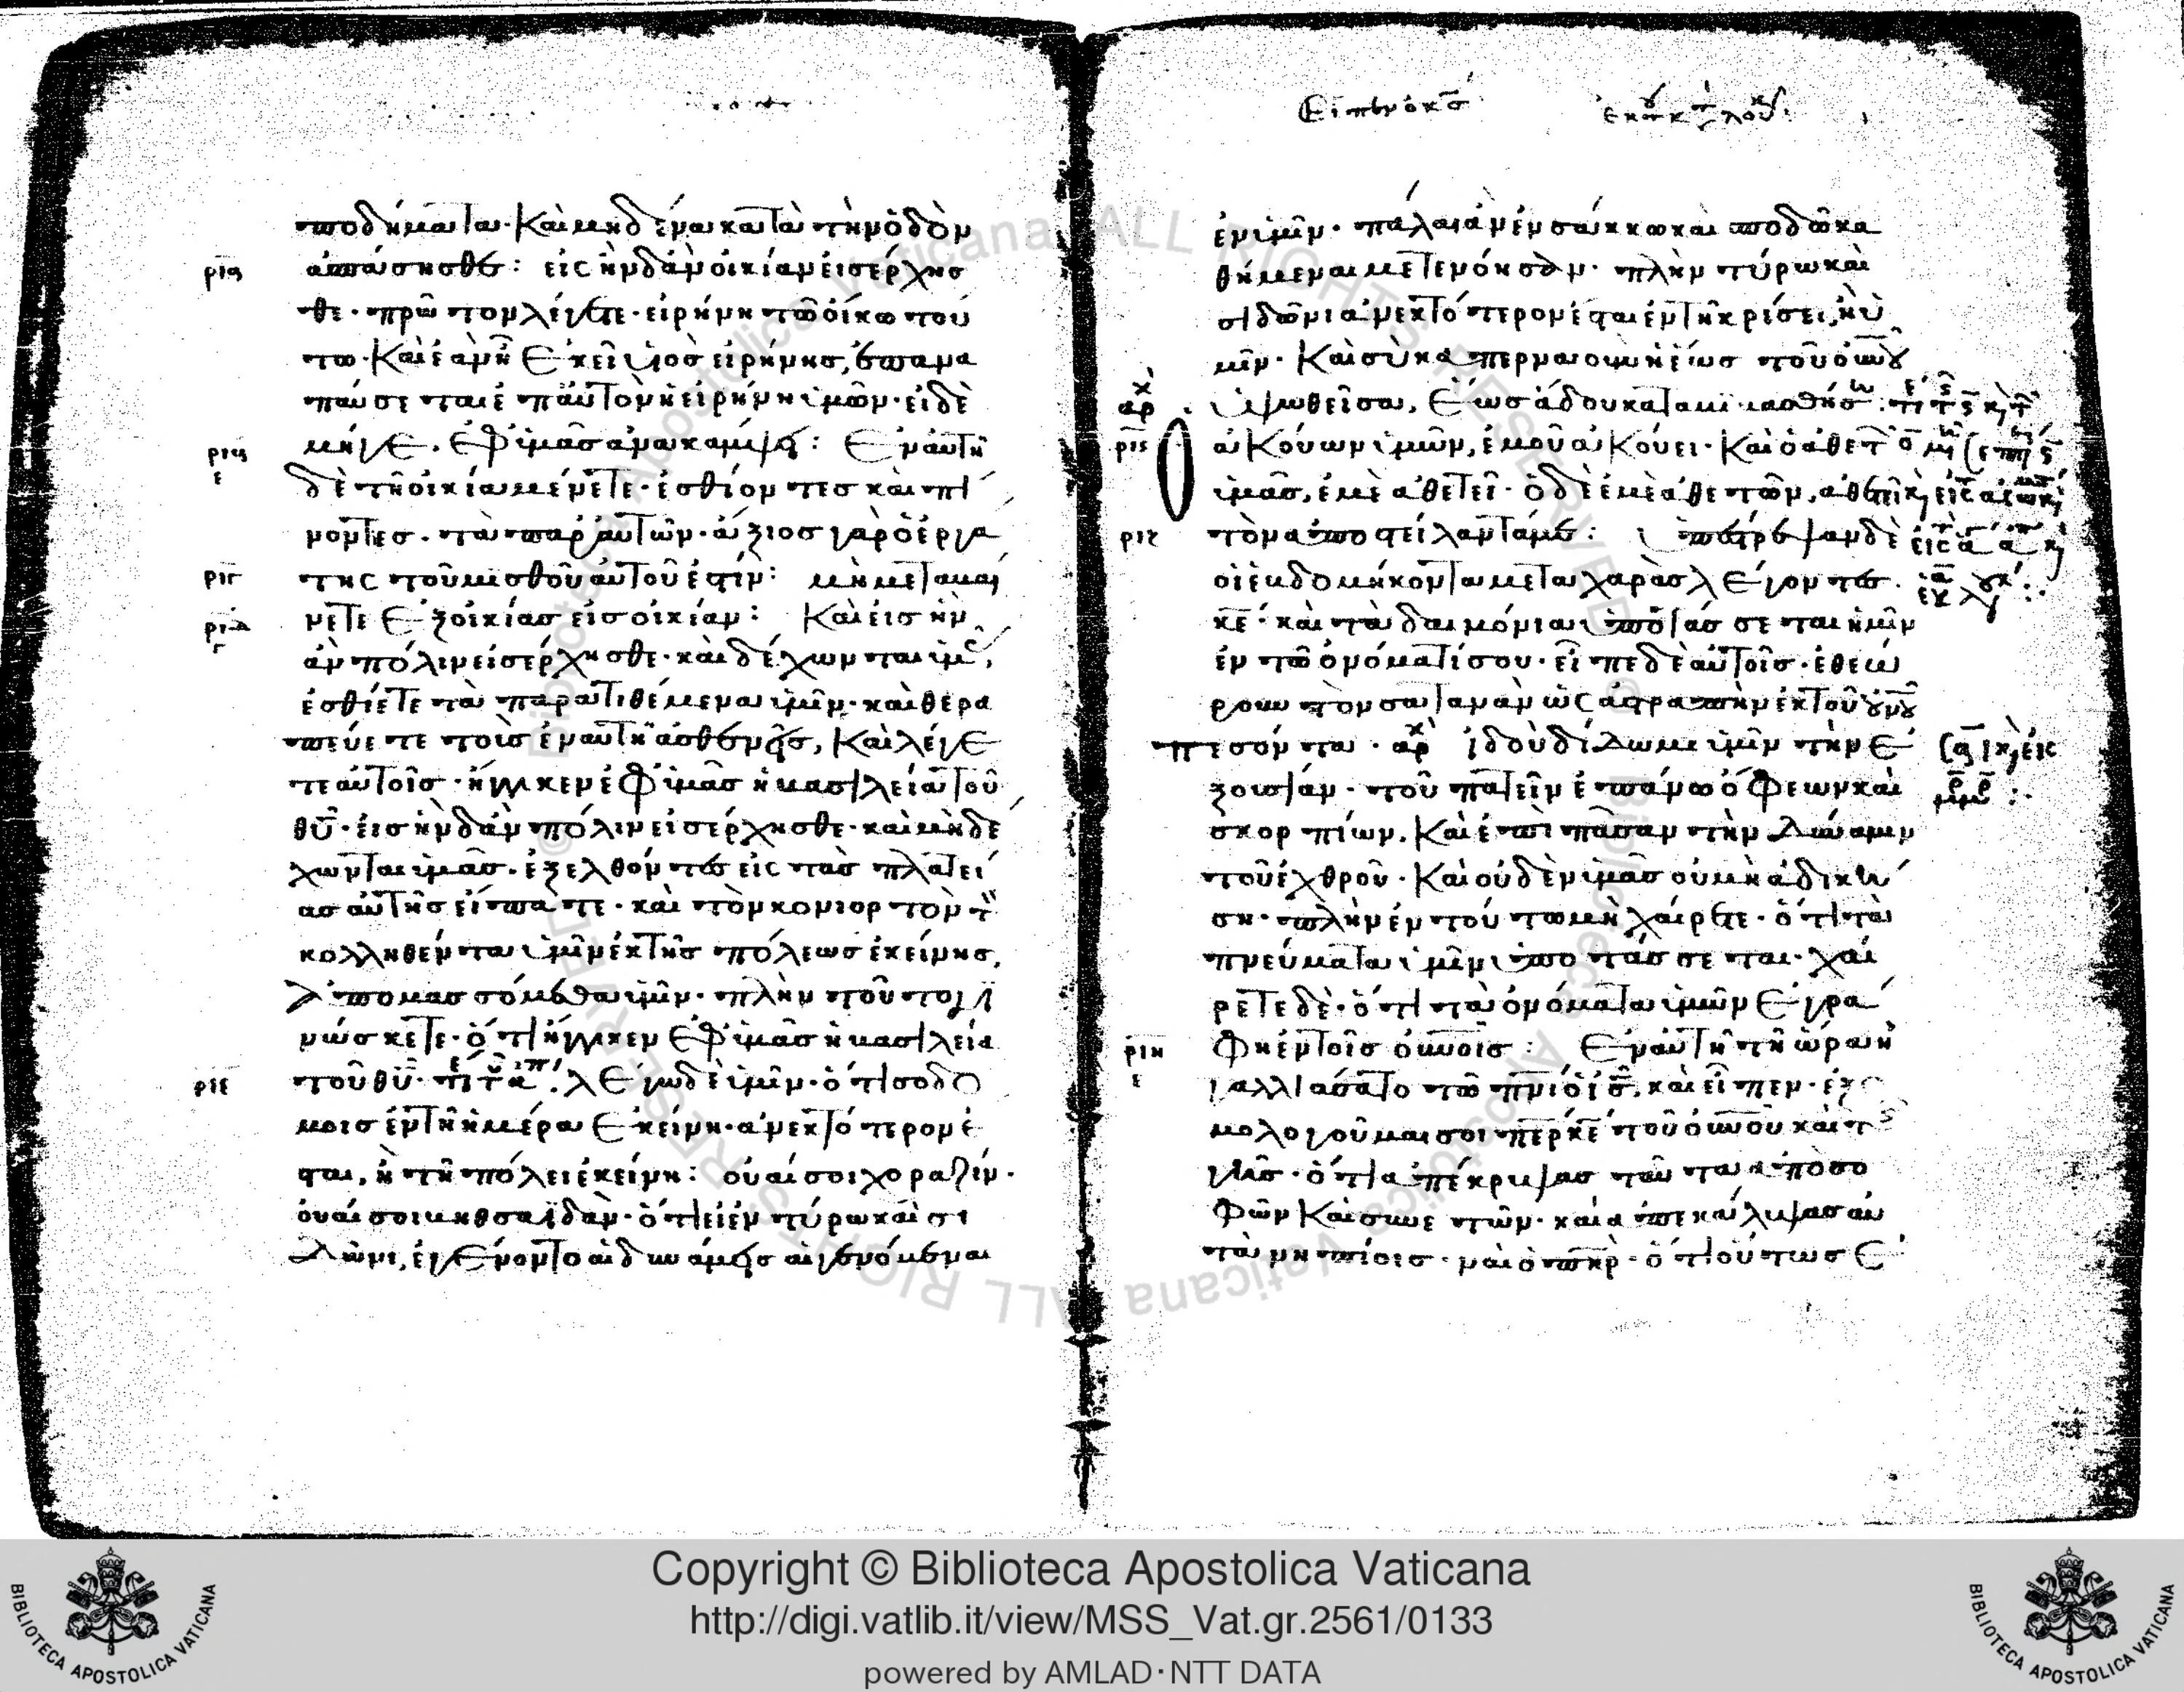 ποδήματα· Καὶ μηδένα κατὰ τὴν ὁδὸν
ἀσπάσησθε: εἰς ἣν δἂν οἰκίαν εἰσέρχησ
θε· πρῶτον λέγετε· εἰρήνη τῶ οἴκω τού
τω· Καὶ ἐὰν ἦ ἐκεῖ υἱὸς εἰρήνης, ἐπανα
παύσεται ἐπ αὐτὸν ἡ εἰρήνη ὑμῶν· εἰ δὲ
μήγε, ἐφ ὑμᾶς ἀνακάμψει: Ἐν αὐτῆ
δὲ τῆ οἰκία μένετε· ἐσθίοντες καὶ πί
νοντες· τὰ παρ αὐτῶν· ἄξιος γὰρ ὁ ἐργά
της τοῦ μισθοῦ αὐτοῦ ἐστίν: μὴ μεταβαί
νετε ἐξ οἰκίας εἰς οἰκίαν: Καὶ εἰς ἣν
ἂν πόλιν εἰσέρχησθε· καὶ δέχωνται ὑμᾶς,
ἐσθίετε τὰ παρατιθέμενα ὑμῖν· καὶ θερα
πεύετε τοὺς ἐν αὐτῆ ἀσθενεῖς, Καὶ λέγε
τε αὐτοῖς· ἤγγικεν ἐφ ὑμᾶς ἡ βασιλεία τοῦ
θῦ· εἰς ἣν δἂν πόλιν εἰσέρχησθε· καὶ μὴ δέ
χωνται ὑμᾶς· ἐξελθόντες εἰς τὰς πλατεί
ας αὐτῆς εἴπατε· καὶ τὸν κονιορτὸν τὸν
κολληθέντα ὑμῖν ἐκ τῆς πόλεως ἐκείνης,
ἀπομασσόμεθα ὑμῖν· πλὴν τοῦτο γι
νώσκετε· ὅτι ἤγγικεν ἐφ ὑμᾶς ἡ βασιλεία
τοῦ θῦ· λέγω δὲ ὑμῖν· ὅτι σοδό
μοις ἐν τῆ ἡμέρα ἐκείνη· ἀνεκτότερον ἔ
σται, ἢ τῆ πόλει ἐκείνη: οὐαί σοι χοραζίν·
οὐαί σοι βηθσαϊδάν· ὅτι εἰ ἐν τύρω καὶ σι
δῶνι, ἐγένοντο αἱ δυνάμεις αἱ γενόμεναι
ἐν ὑμῖν· πάλαι ἂν ἐν σάκκω καὶ σποδῶ κα
θήμεναι μετενόησαν· πλὴν τύρω καὶ
σιδῶνι ἀνεκτότερον ἔσται ἐν τῆ κρίσει, ἢ ὑ
μῖν· Καὶ σὺ καπερναοὺμ ἡ ἕως τοῦ οὐνοῦ
ὑψωθεῖσα, ἕως ἅδου καταβιβασθήση·
ἀκούων ὑμῶν, ἐμοῦ ἀκούει· Καὶ ὁ ἀθετῶν
ὑμᾶς, ἐμὲ ἀθετεῖ· ὁ δὲ ἐμὲ ἀθετῶν, ἀθετεῖ
τὸν ἀποστείλαντά με: ὑπέστρεψαν δὲ
οἱ ἑβδομήκοντα μετα χαρᾶς λέγοντες·
κε· καὶ τὰ δαιμόνια ὑποτάσσεται ἡμῖν
ἐν τῶ ὀνόματί σου· εἶπε δὲ αὐτοῖς· ἐθεώ
ρουν τὸν σατανᾶν ὡς ἀστραπὴν ἐκ τοῦ οὐνοῦ
πεσόντα· ἀρχ ἰδοὺ δίδωμι ὑμῖν τὴν ἐ
ξουσίαν· τοῦ πατεῖν ἐπάνω ὄφεων καὶ
σκορπίων, Καὶ ἐπὶ πᾶσαν τὴν δύναμιν
τοῦ ἐχθροῦ· Καὶ οὐδὲν ὑμᾶς οὐ μὴ ἀδική
ση· πλὴν ἐν τούτω μὴ χαίρετε· ὅτι τὰ
πνεύματα ὑμῖν ὑποτάσσεται· χαί
ρετε δὲ· ὅτι τὰ ὀνόματα ὑμῶν ἐγρά
φη ἐν τοῖς οὐνοῖς: Ἐν αὐτῆ τῆ ὥρα ἠ
γαλλιάσατο τῶ πνι ὁ ις, καὶ εἶπεν· ἐξο
μολογοῦμαι σοι περ κε τοῦ οὐνοῦ καὶ τῆς
γῆς· ὅτι ἀπέκρυψας ταῦτα ἀπὸ σο
φῶν Καὶ συνετῶν· καὶ ἀπεκάλυψας αὐ
τὰ νηπίοις· ναὶ ὁ πηρ· ὅτι οὕτως ἐ
Copyright © Biblioteca Apostolica Vaticana
http://digi.vatlib.it/view/MSS_Vat.gr.2561/0133
powered by AMLAD·NTT DATA
BIBLIOTECA APOSTOLICA VATICANA
BIBLIOTECA APOSTOLICA VATICANA